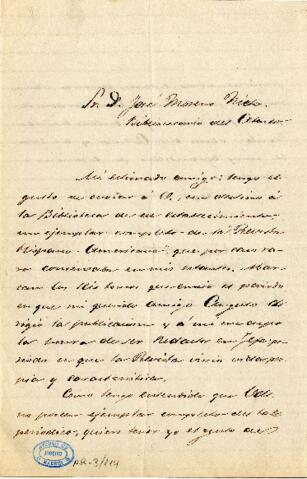 Sr. D. José Moreno Nieto
Bibliotecario del Ateneo.
Mi estimado amigo: tengo el
gusto de enviar á V., con destino á
la Biblioteca de ese establecimiento
un ejemplar completo de la "Revista
Hispano-Americana", que por
conservaba en mis estantes.
los seis tomos que envio el periodo
en que mi querido amigo Augusto
la publicacion y á mi me cupo
la honra de ser Redactor en Jefe,
periodo en que la Revista vivió vida pro-
pia y característica.
Como tengo entendido que Vds.
no poseen ejemplar completo de este
periodico, quiero tener yo el gusto de
AR-3/114